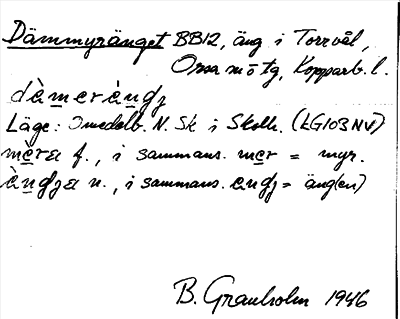 Dämmyränget BB12, äng i Torrvål,
Orsa sn o tg, Kopparb. l.
dèmerèngʒ
Läge: Omedelb. N. Sk i Skolh. (LG103NV)
mèra f., i sammans. mer = myr.
èngʒa n., i sammans. engʒ = äng(en)
B. Granholm 1946